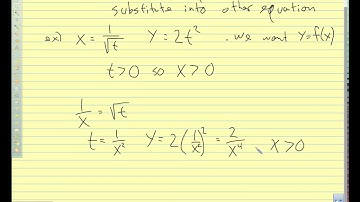 substitute into other equation
ex) x = 1/√t y = 2t² . we want y=f(x)
t>0 so x>0
1/x = √t
t = 1/x² y = 2(1/x²)² = 2/x⁴ , x>0